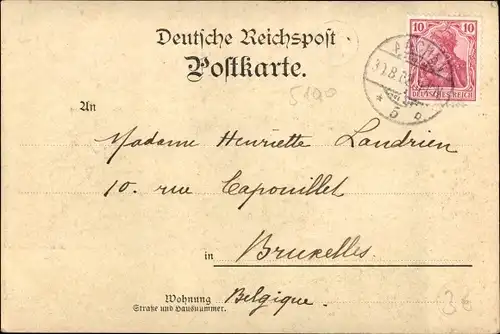 Deutsche Reichspost
Postkarte.
10 10
DEUTSCHES REICH
5100
An
Madame Henriette Landrien
10. rue Capouillet
in Bruxelles.
Wohnung
Straße und Hausnummer.
Belgique.